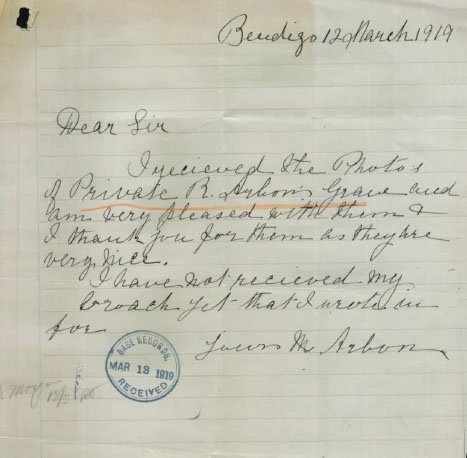 Bendigo 12 March 1919
Dear Sir
I recieved the Photos
of Private R. Arbon's Grave and
am very pleased with them &
I thank you for them as they are
very nice.
I have not recieved my
broach yet that I wrote in
for
Yours M Arbon
BASE RECORDS.
MAR 18 1919
RECEIVED